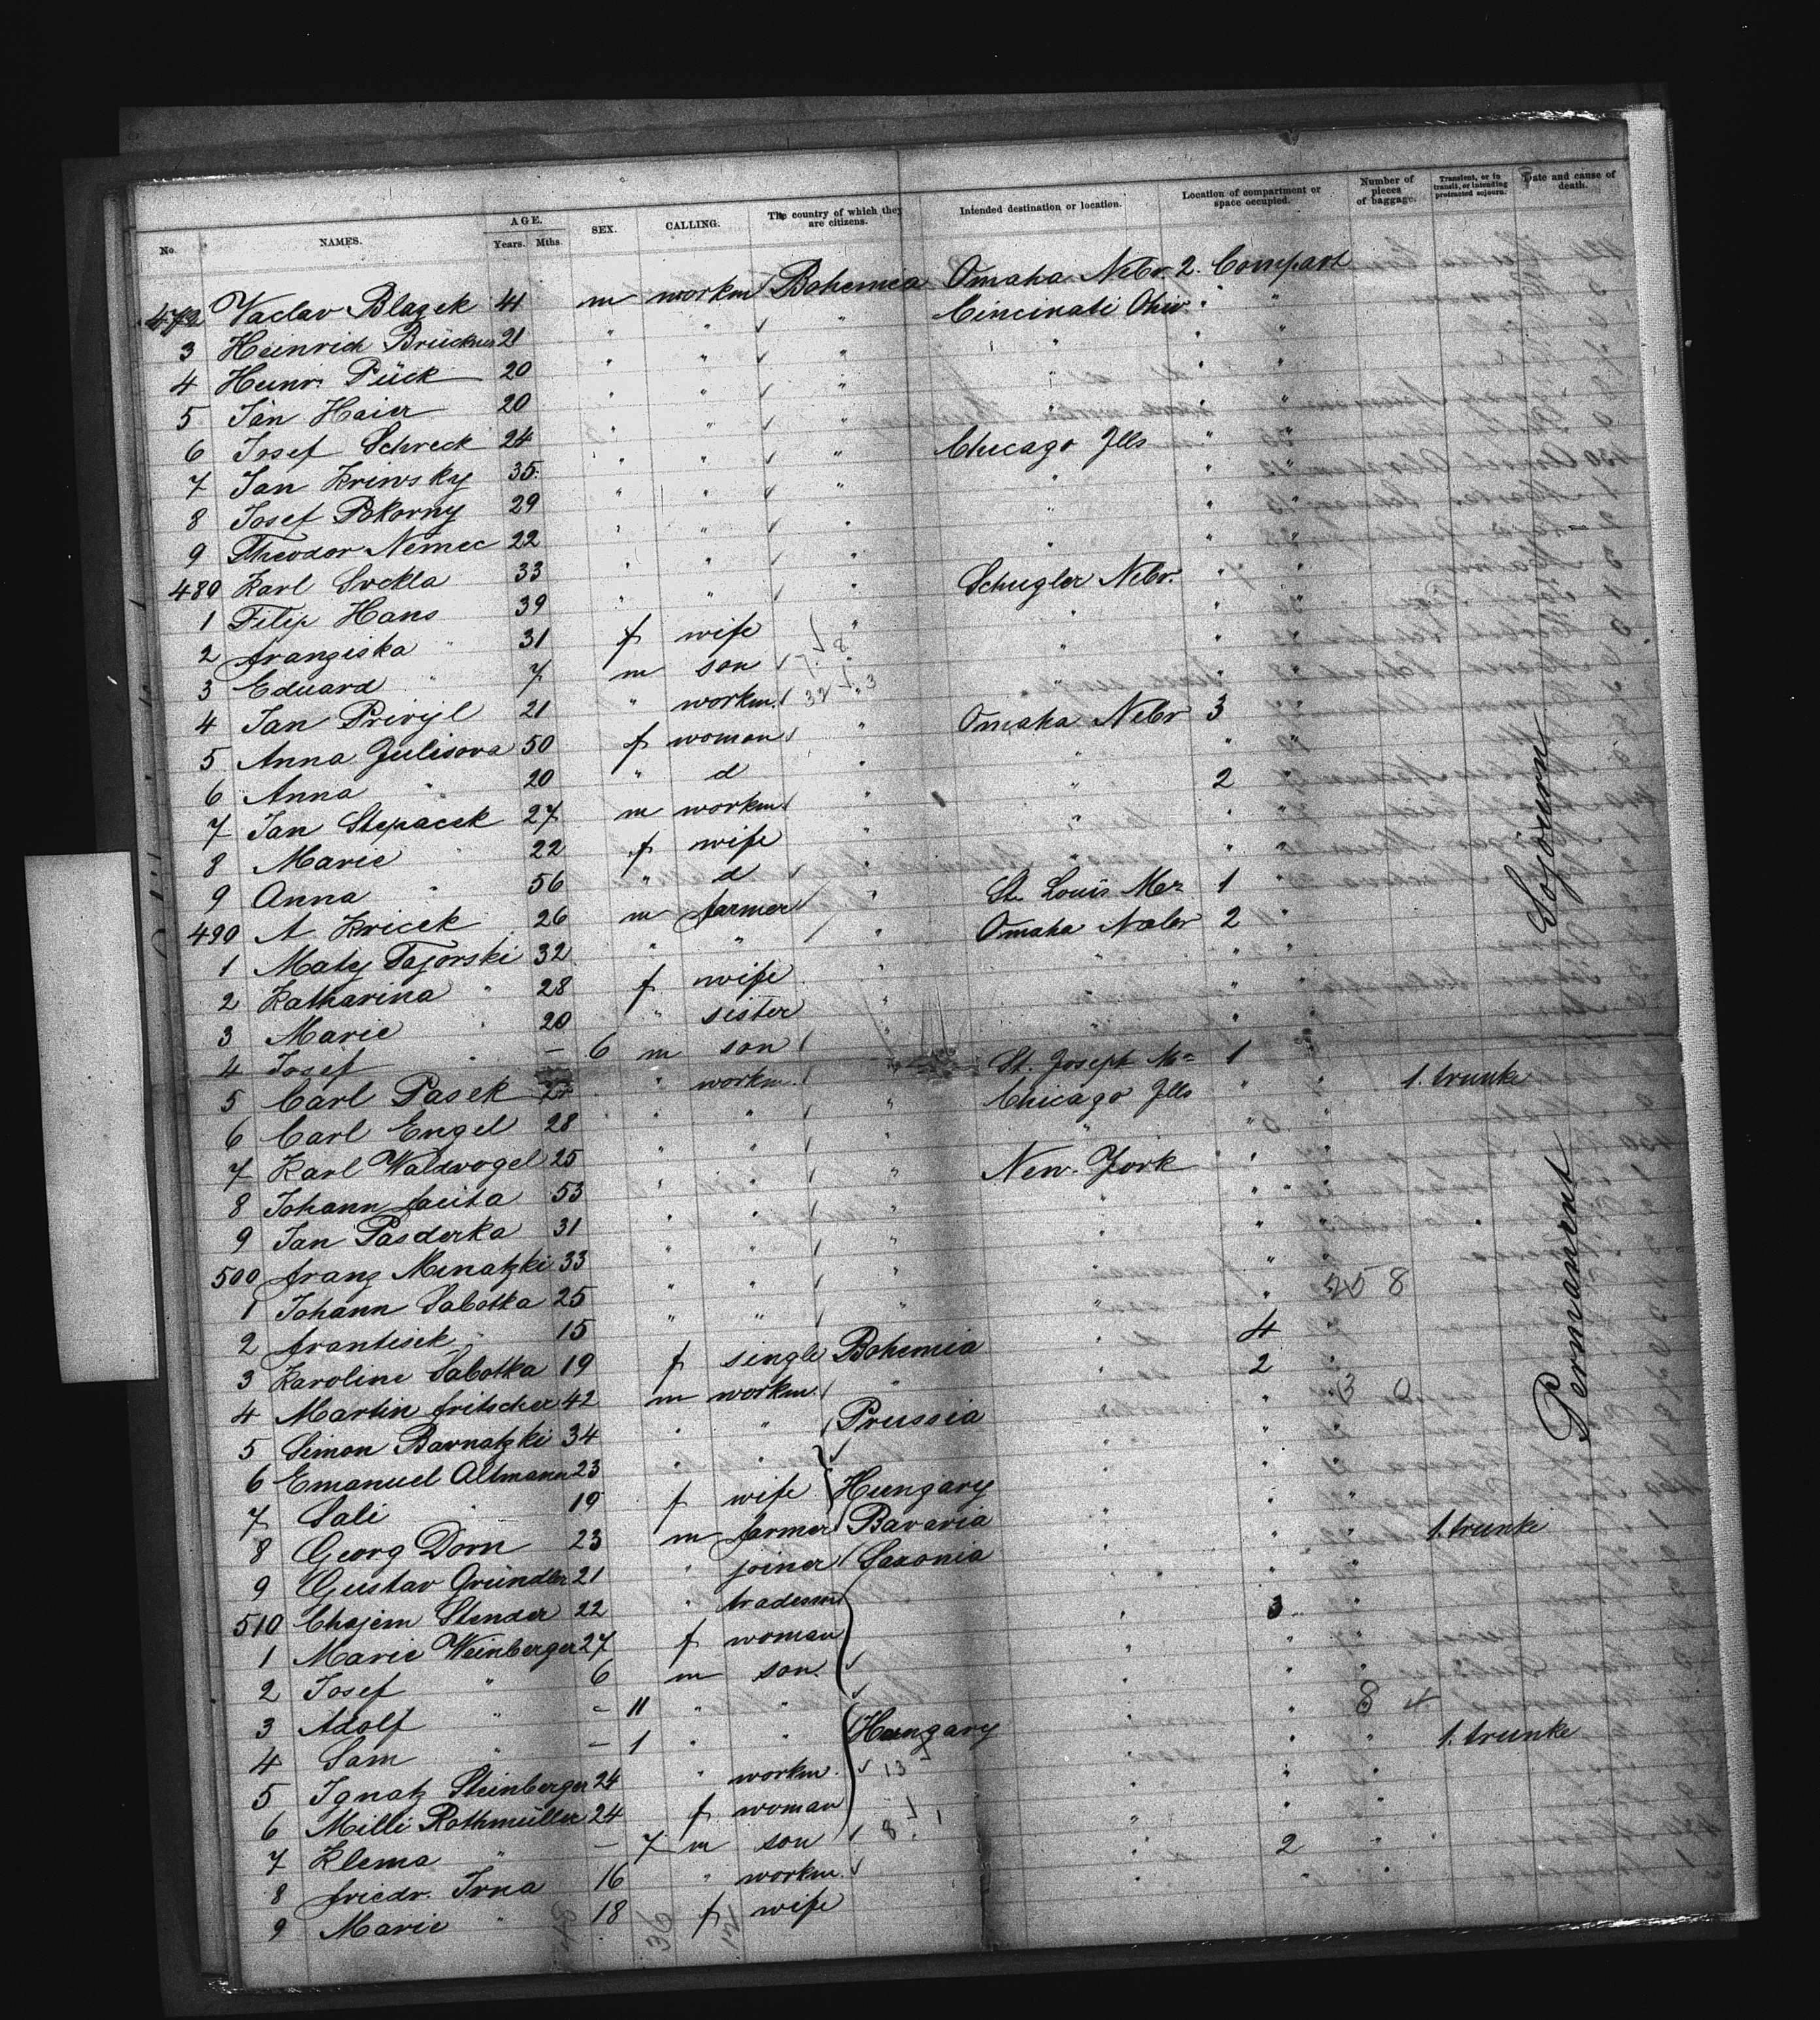 No. NAMES. AGE. Years. Mths. SEX. CALLING. The country of which they are citizens. Intended destination or location. Location of compartment or space occupied. Number of pieces of baggage. Transient, or in transit, or intending protracted sojourn. Date and cause of death.
472 Vaclav Blazek 41 m workm Bohemia Omaha Nebr. 2. Compart
3 Heinrich Brückner 21 " " " Cincinati Ohio " "
4 Heinr. Pück 20 " " " " " "
5 Jan Haier 20 " " " " " "
6 Josef Schreck 24 " " " " " "
7 Jan Kriwsky 35 " " " Chicago Ills " "
8 Josef Pokorny 29 " " " " " "
9 Theodor Nemec 22 " " " " " "
480 Karl Svekla 33 " " " " " "
1 Filip Hans 39 " " " Schugler Nebr. " "
2 Franziska " 31 f wife " " " "
3 Eduard " 7 m son " " " "
4 Jan Privyl 21 " workm. " " "
5 Anna Julisova 50 f woman " Omaha Nebr 3 "
6 Anna " 20 " d " " " "
7 Jan Stepacek 27 m workm " " 2 "
8 Marie " 22 f wife " " " "
9 Anna " 56 " d " " " "
490 A. Kricek 26 m farmer " St. Louis Mo 1 "
1 Maty Tajorski 32 " " " Omaha Nebr 2 "
2 Katharina " 28 f wife " " " "
3 Marie " 20 " sister " " " "
4 Josef " — 6 m son " " "
5 Carl Pasek " workm. " St. Joseph Mo 1 "
6 Carl Engel 28 " " " Chicago Ills " " 1. trunk
7 Karl Waldvogel 25 " " " " " "
8 Johann Facita 53 " " " New-York " "
9 Jan Pasderka 31 " " " " " "
500 Franz Munatzki 33 " " " " " "
1 Johann Sabotka 25 " " " " " "
2 Frantisek " 15 " " " " "
3 Karoline Sabotka 19 f single Bohemia " 4
4 Martin Fritscher 42 m workm. " " 2
5 Simon Barnatzki 34 " " Prussia " " "
6 Emanuel Altmann 23 " " " " "
7 Sali " 19 f wife Hungary " " "
8 Georg Dorn 23 m farmer Bavaria " " "
9 Gustav Gründler 21 " joiner Saxonia " " " 1. trunk
510 Chajem Stender 22 " tradesm " " "
1 Marie Weinberger 27 f woman " 3 "
2 Josef " 6 m son " " "
3 Adolf " — 11 " " " " "
4 Sam " — 1 " " Hungary " "
5 Ignatz Steinberger 24 " workm. " " " 1. trunk
6 Milli Rothmüller 24 f woman " " "
7 Klema " — 7 m son " " "
8 Friedr. Irna 16 " workm. " 2 "
9 Marie " 18 f wife " " "
Permanent Sojourn